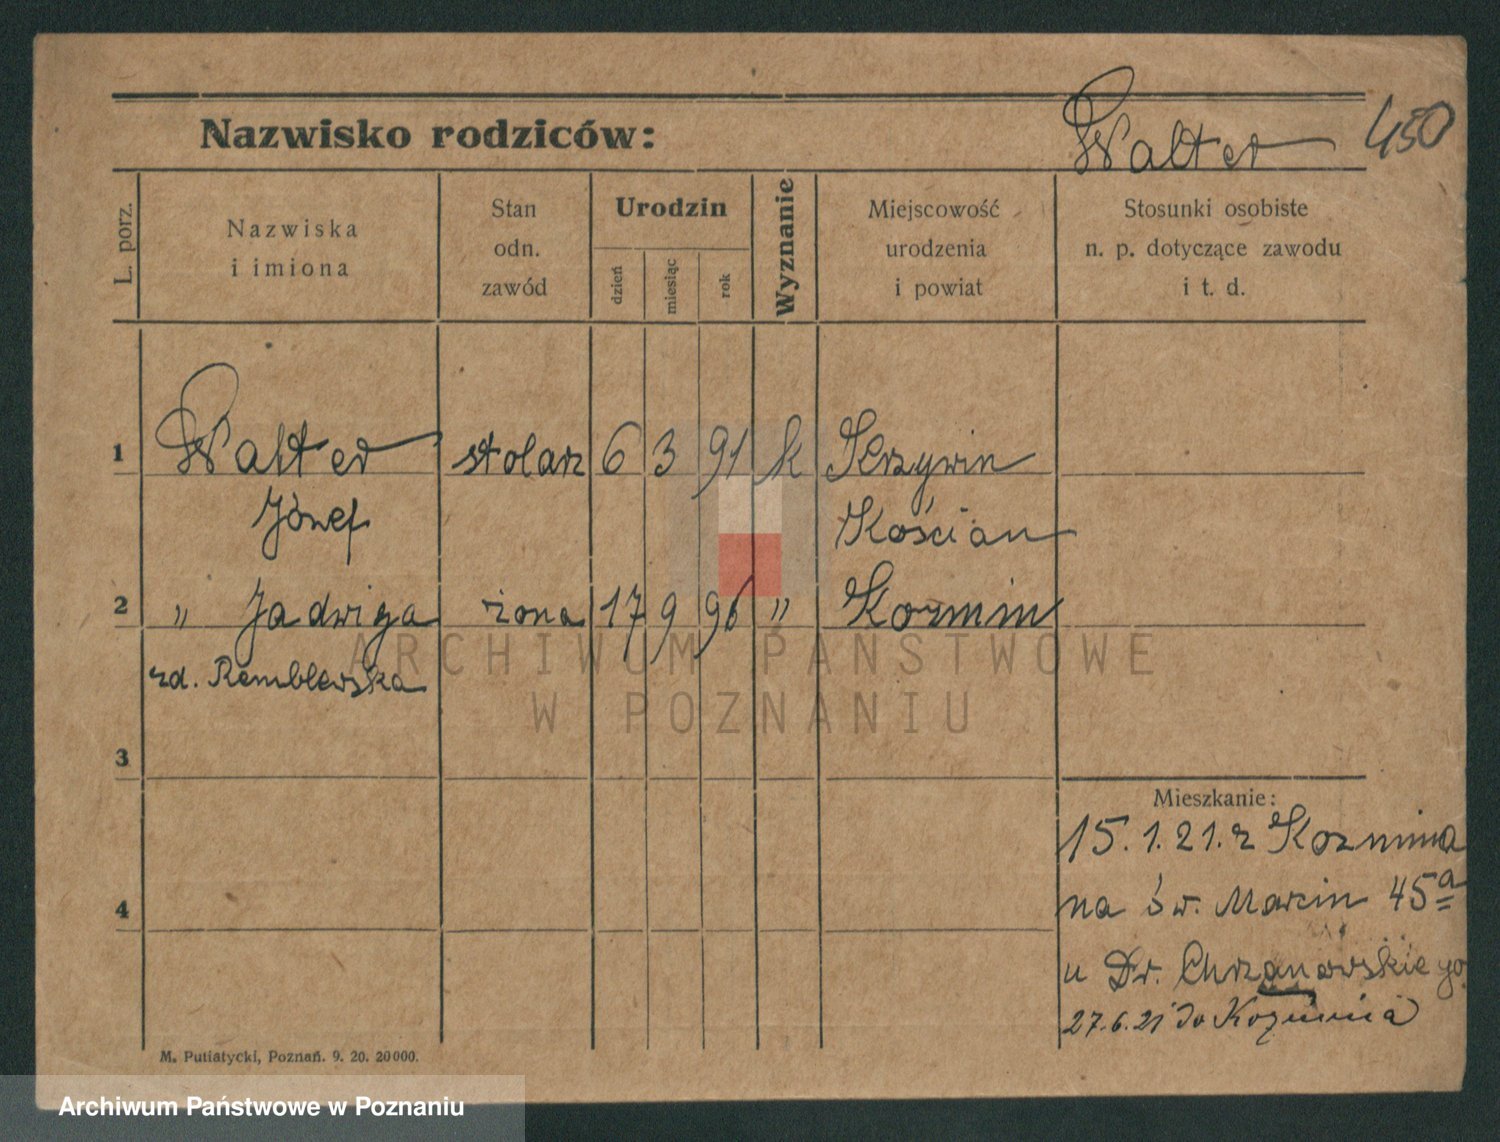 Nazwisko rodziców: Walter 450
L. porz.
Nazwiska i imiona
Stan odn. zawód
Urodzin
dzień miesiąc rok
Wyznanie
Miejscowość urodzenia i powiat
Stosunki osobiste n. p. dotyczące zawodu i t. d.
1 Walter stolarz 6 3 91 k Krzywin
Józef Kościan
2 " Jadwiga żona 17 9 96 " Kozmin
zd. Remblewska
ARCHIWUM PAŃSTWOWE
W POZNANIU
3
Mieszkanie:
15. 1. 21. z Kozmina
4 na św. Marcin 45a
u Dr. Chrzanowskiego
27.6.21 do Kozmina
M. Putiatycki, Poznań. 9. 20. 20000.
Archiwum Państwowe w Poznaniu